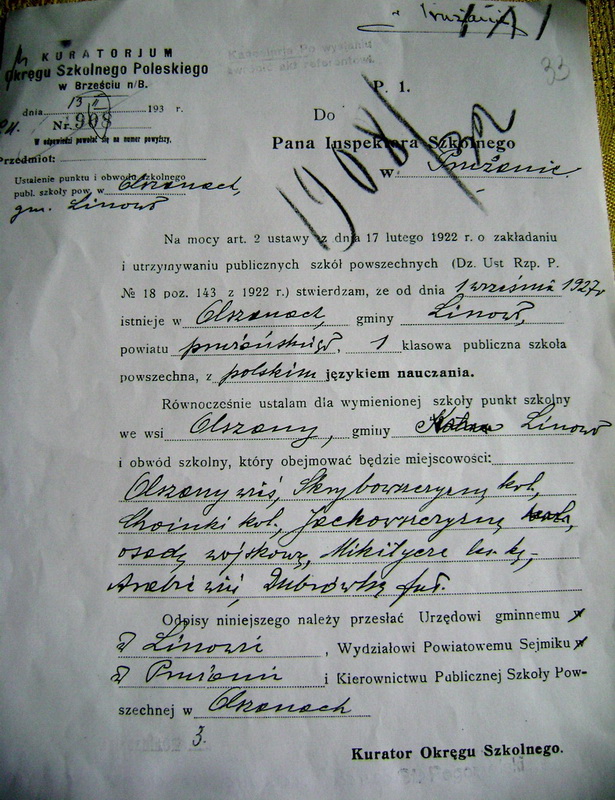 Prużanie
KURATORJUM
Okręgu Szkolnego Poleskiego
w Brześciu n/B.
Kancelarja Po wysłaniu
zwrócić akt referentowi.
33
P. 1.
dnia 13 II 193 r.
Nr. 908
W odpowiedzi powołać się na numer powyższy.
Do
Pana Inspektora Szkolnego
w Prużanie
1908/32
Przedmiot:
Ustalenie punktu i obwodu szkolnego
publ. szkoły pow. w Olszanach,
gm. Linowo
Na mocy art. 2 ustawy z dnia 17 lutego 1922 r. o zakładaniu
i utrzymywaniu publicznych szkół powszechnych (Dz. Ust Rzp. P.
№ 18 poz. 143 z 1922 r.) stwierdzam, ze od dnia 1 września 1927 r
istnieje w Olszanach, gminy Linowo,
powiatu prużańskiego, 1 klasowa publiczna szkoła
powszechna, z polskim językiem nauczania.
Równocześnie ustalam dla wymienionej szkoły punkt szkolny
we wsi Olszany, gminy Linowo
i obwód szkolny, który obejmować będzie miejscowości:
Olszany wieś, Skrybowszczyznę kol,
Choinki kol., Jackowszczyznę
osadę wojskową, Mikitycze
wieś, Dubrówkę fol.
Odpisy niniejszego należy przesłać Urzędowi gminnemu
w Linowie, Wydziałowi Powiatowemu Sejmiku
w Prużanie i Kierownictwu Publicznej Szkoły Pow-
szechnej w Olszanach
3.
Kurator Okręgu Szkolnego.